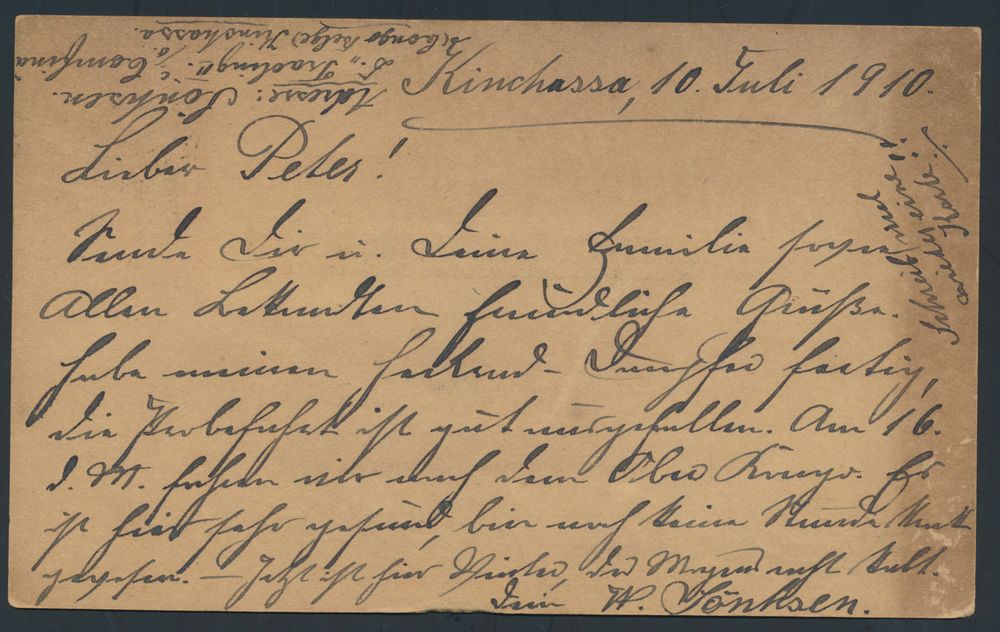 Kinchassa, 10. Juli 1910.
Lieber Peter!
Sende Dir u. Deine Familie sowie
Allen Bekandten freundliche Grüße.
Habe meinen Heckrad-Dampfer fertig,
die Probefahrt ist gut ausgefallen. Am 16.
d. M. fahren wir nach dem Ober Kongo. Es
ist hier sehr gesund, bin noch keine Stunde krank
gewesen. — Jetzt ist hier Winter, des Morgens recht kalt.
Dein W. Tönksen.
Schreib mal
wieder eine
Karte.
Adresse: Tönksen.
Trading c/o
(Congo Belge) Kinshassa.